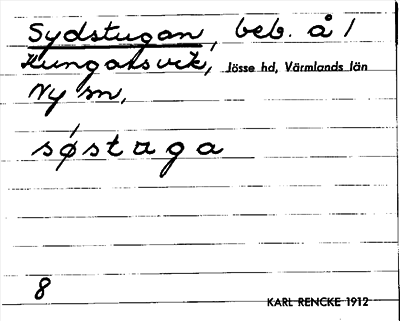 Sydstugan, beb. å 1
Kungaksvik, Jösse hd, Värmlands län
Ny sn,
sǿstaga
8
KARL RENCKE 1912